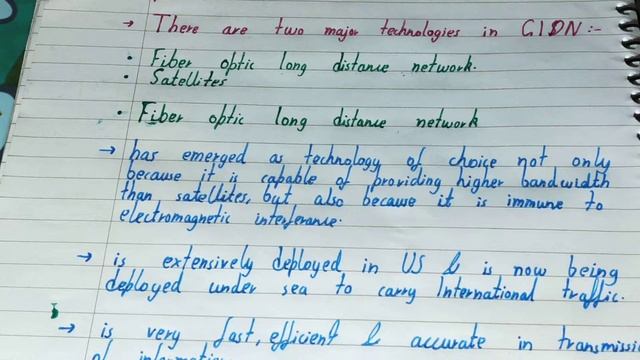 → There are two major technologies in GIDN:-
• Fiber optic long distance network.
• Satellites
• Fiber optic long distance network
→ has emerged as technology of choice not only
because it is capable of providing higher bandwidth
than satellites, but also because it is immune to
electromagnetic interferance.
→ is extensively deployed in US & is now being
deployed under sea to carry International traffic.
→ is very fast, efficient & accurate in
of